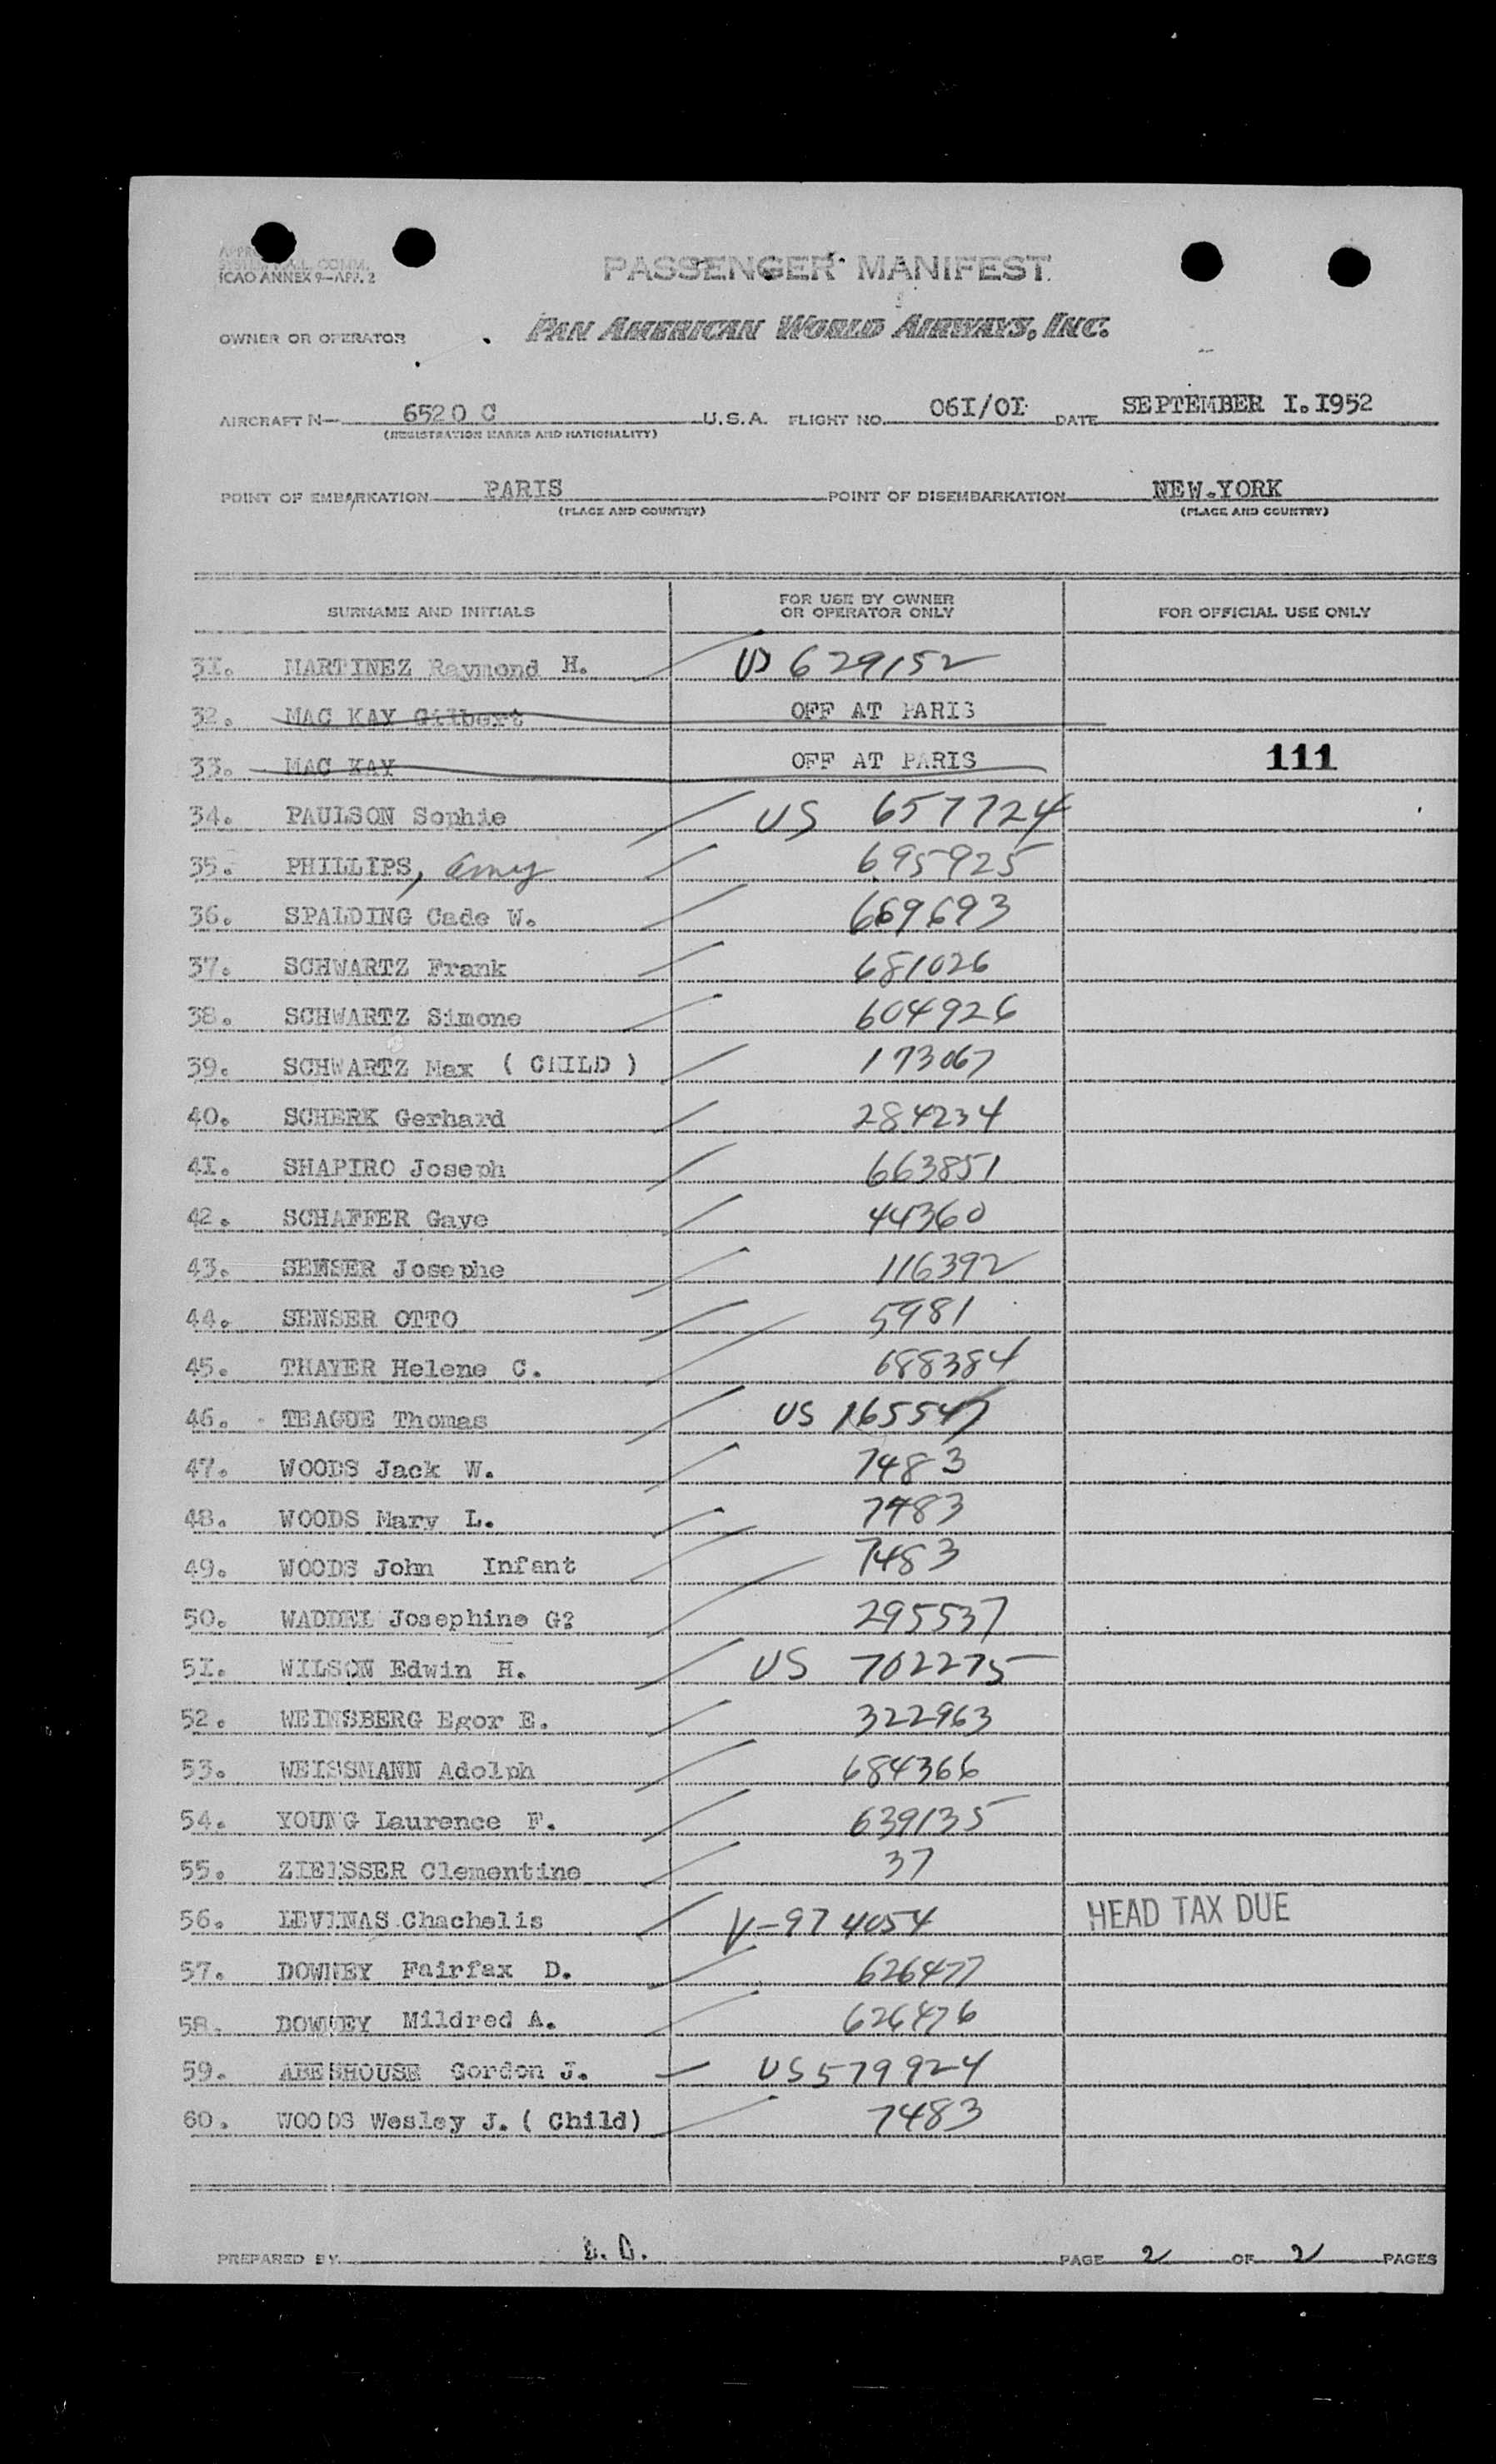 ICAO ANNEX 9—APP. 2
PASSENGER MANIFEST
OWNER OR OPERATOR
PAN AMERICAN WORLD AIRWAYS, INC.
AIRCRAFT N— 6520 C U.S.A. FLIGHT NO. 06I/0I DATE SEPTEMBER I.I952
(REGISTRATION MARKS AND NATIONALITY)
POINT OF EMBARKATION PARIS POINT OF DISEMBARKATION NEW.YORK
(PLACE AND COUNTRY) (PLACE AND COUNTRY)
SURNAME AND INITIALS FOR USE BY OWNER OR OPERATOR ONLY FOR OFFICIAL USE ONLY
3I. MARTINEZ Raymond H. US 629152
32. MAC KAY Gilbert OFF AT PARIS
33. MAC KAY OFF AT PARIS 111
34. PAULSON Sophie US 657724
35. PHILLIPS, Amy 695925
36. SPALDING Cade W. 669693
37. SCHWARTZ Frank 681026
38. SCHWARTZ Simone 604926
39. SCHWARTZ Max ( CHILD ) 173067
40. SCHERK Gerhard 284234
4I. SHAPIRO Joseph 663851
42. SCHAFFER Gaye 44360
43. SENSER Josephe 116392
44. SENSER OTTO 5981
45. THAYER Helene C. 688384
46. TEAGUE Thomas US 165547
47. WOODS Jack W. 7483
48. WOODS Mary L. 7483
49. WOODS John Infant 7483
50. WADDEL Josephine G? 295537
5I. WILSON Edwin H. US 702275
52. WEINSBERG Egor E. 322963
53. WEISSMANN Adolph 684366
54. YOUNG Laurence F. 639135
55. ZIEISSER Clementine 37
56. LEVINAS Chachelis V-974054 HEAD TAX DUE
57. DOWNEY Fairfax D. 626477
58. DOWNEY Mildred A. 626476
59. ABESHOUSE Gordon J. US 579924
60. WOODS Wesley J. ( Child) 7483
PREPARED BY PAGE 2 OF 2 PAGES